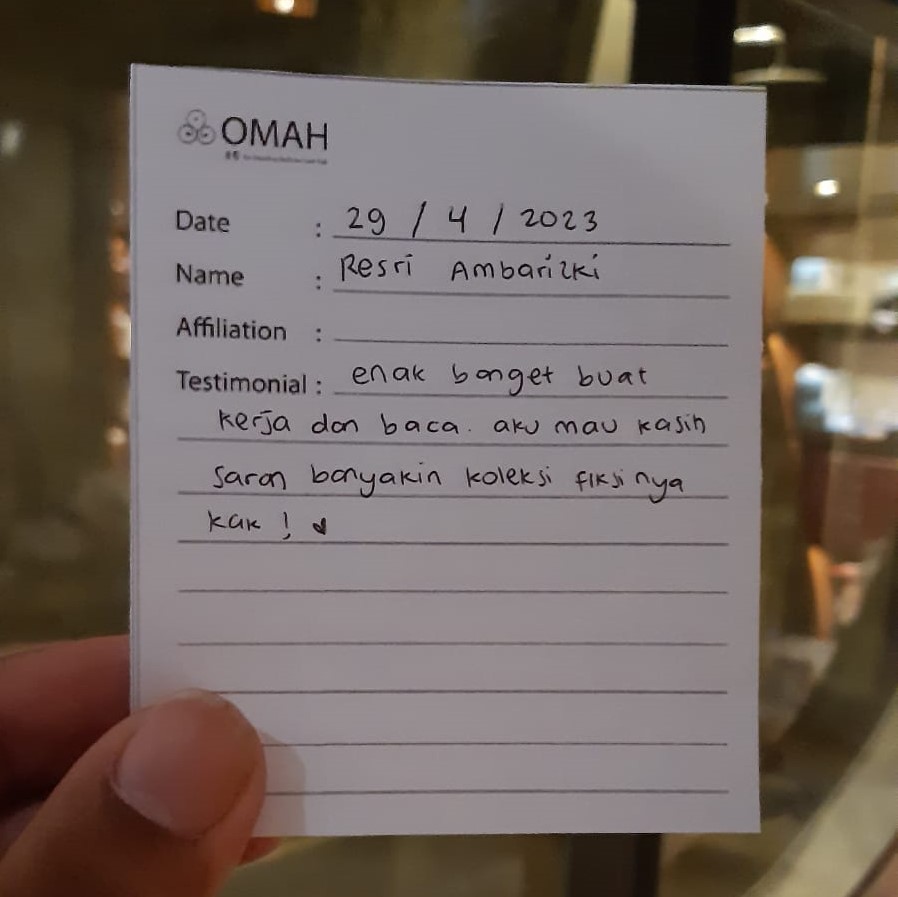 OMAH
Date : 29 / 4 / 2023
Name : Resri Ambarizki
Affiliation :
Testimonial : enak banget buat
kerja dan baca. aku mau kasih
saran banyakin koleksi fiksinya
kak !